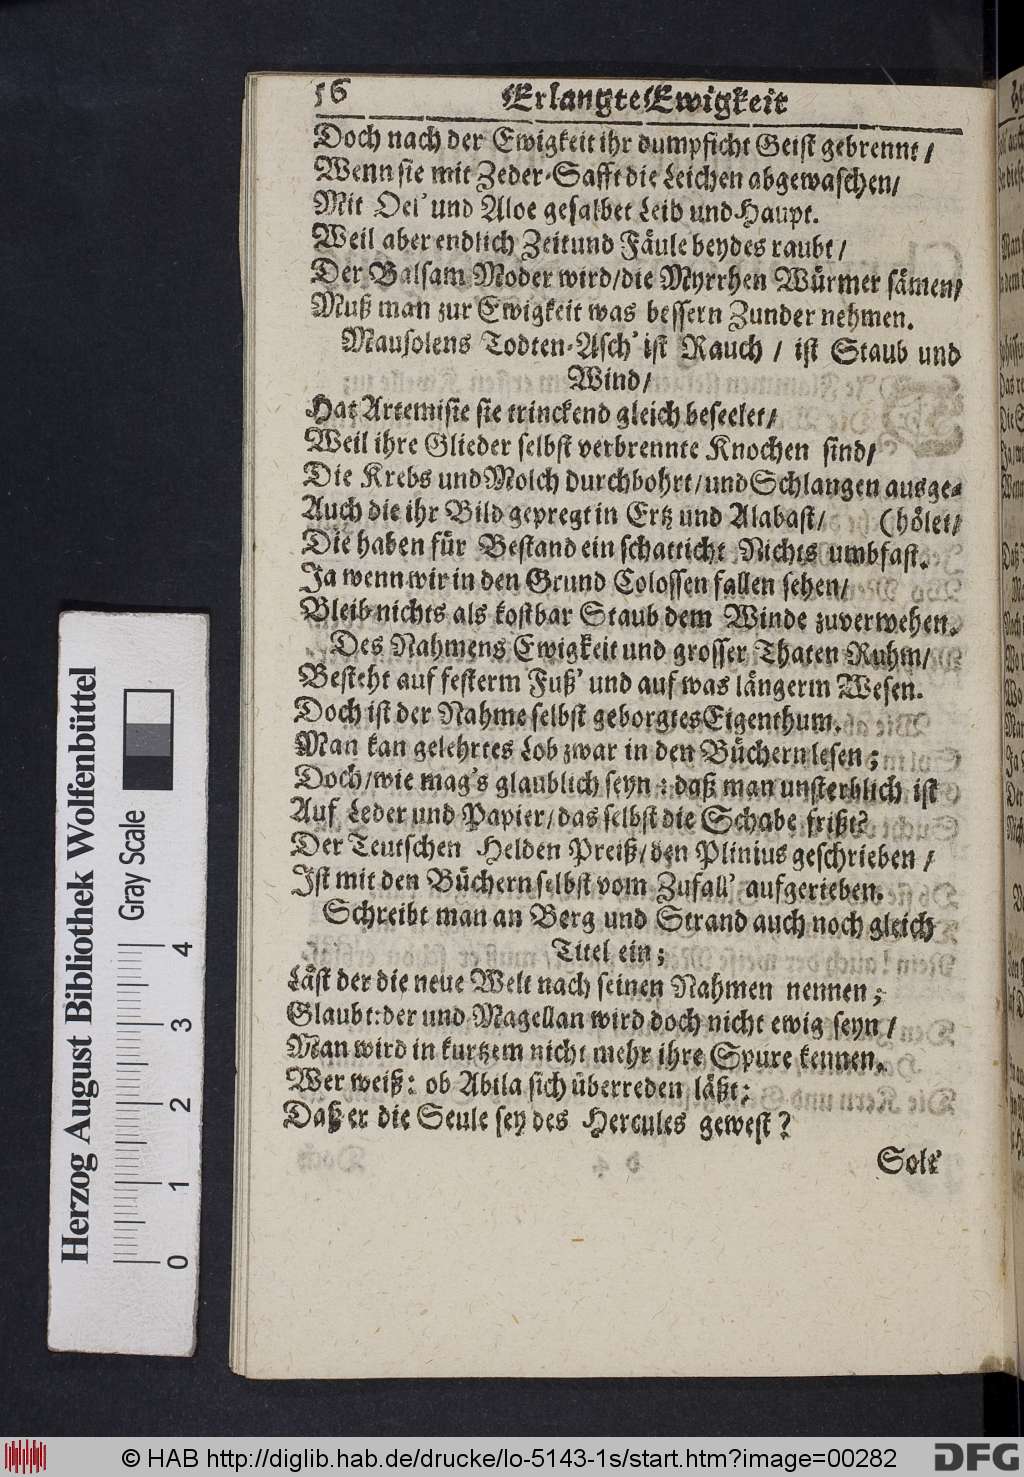 56
Erlangte Ewigkeit
Doch nach der Ewigkeit ihr dumpficht Geist gebrennt /
Wenn sie mit Zeder-Safft die Leichen abgewaschen/
Mit Oel’ und Aloe gesalbet Leib und Haupt.
Weil aber endlich Zeit und Fäule beydes raubt/
Der Balsam Moder wird/die Myrrhen Würmer sämen/
Muß man zur Ewigkeit was bessern Zunder nehmen.
Mausolens Todten-Asch’ ist Rauch / ist Staub und
Wind/
Hat Artemisie sie trinckend gleich beseelet/
Weil ihre Glieder selbst verbrennte Knochen sind/
Die Krebs und Molch durchbohrt/und Schlangen ausge-
Auch die ihr Bild gepregt in Ertz und Alabast/ (hölet/
Die haben für Bestand ein schatticht Nichts umbfast.
Ja wenn wir in den Grund Colossen fallen sehen/
Bleib nichts als kostbar Staub dem Winde zuverwehen.
Des Nahmens Ewigkeit und grosser Thaten Ruhm/
Besteht auf festerm Fuß’ und auf was längerm Wesen.
Doch ist der Nahme selbst geborgtes Eigenthum.
Man kan gelehrtes Lob zwar in den Büchern lesen;
Doch/wie mag’s glaublich seyn: daß man unsterblich ist
Auf Leder und Papier/das selbst die Schabe frißt?
Der Teutschen Helden Preiß/den Plinius geschrieben /
Ist mit den Büchern selbst vom Zufall’ aufgerieben.
Schreibt man an Berg und Strand auch noch gleich
Titel ein;
Läst der die neue Welt nach seinen Nahmen nennen;
Glaubt: der und Magellan wird doch nicht ewig seyn /
Man wird in kurtzem nicht mehr ihre Spure kennen.
Wer weiß: ob Abila sich überreden läßt:
Daß er die Seule sey des Hercules gewest?
Solt’
Herzog August Bibliothek Wolfenbüttel
Gray Scale
0 1 2 3 4
© HAB http://diglib.hab.de/drucke/lo-5143-1s/start.htm?image=00282
DFG